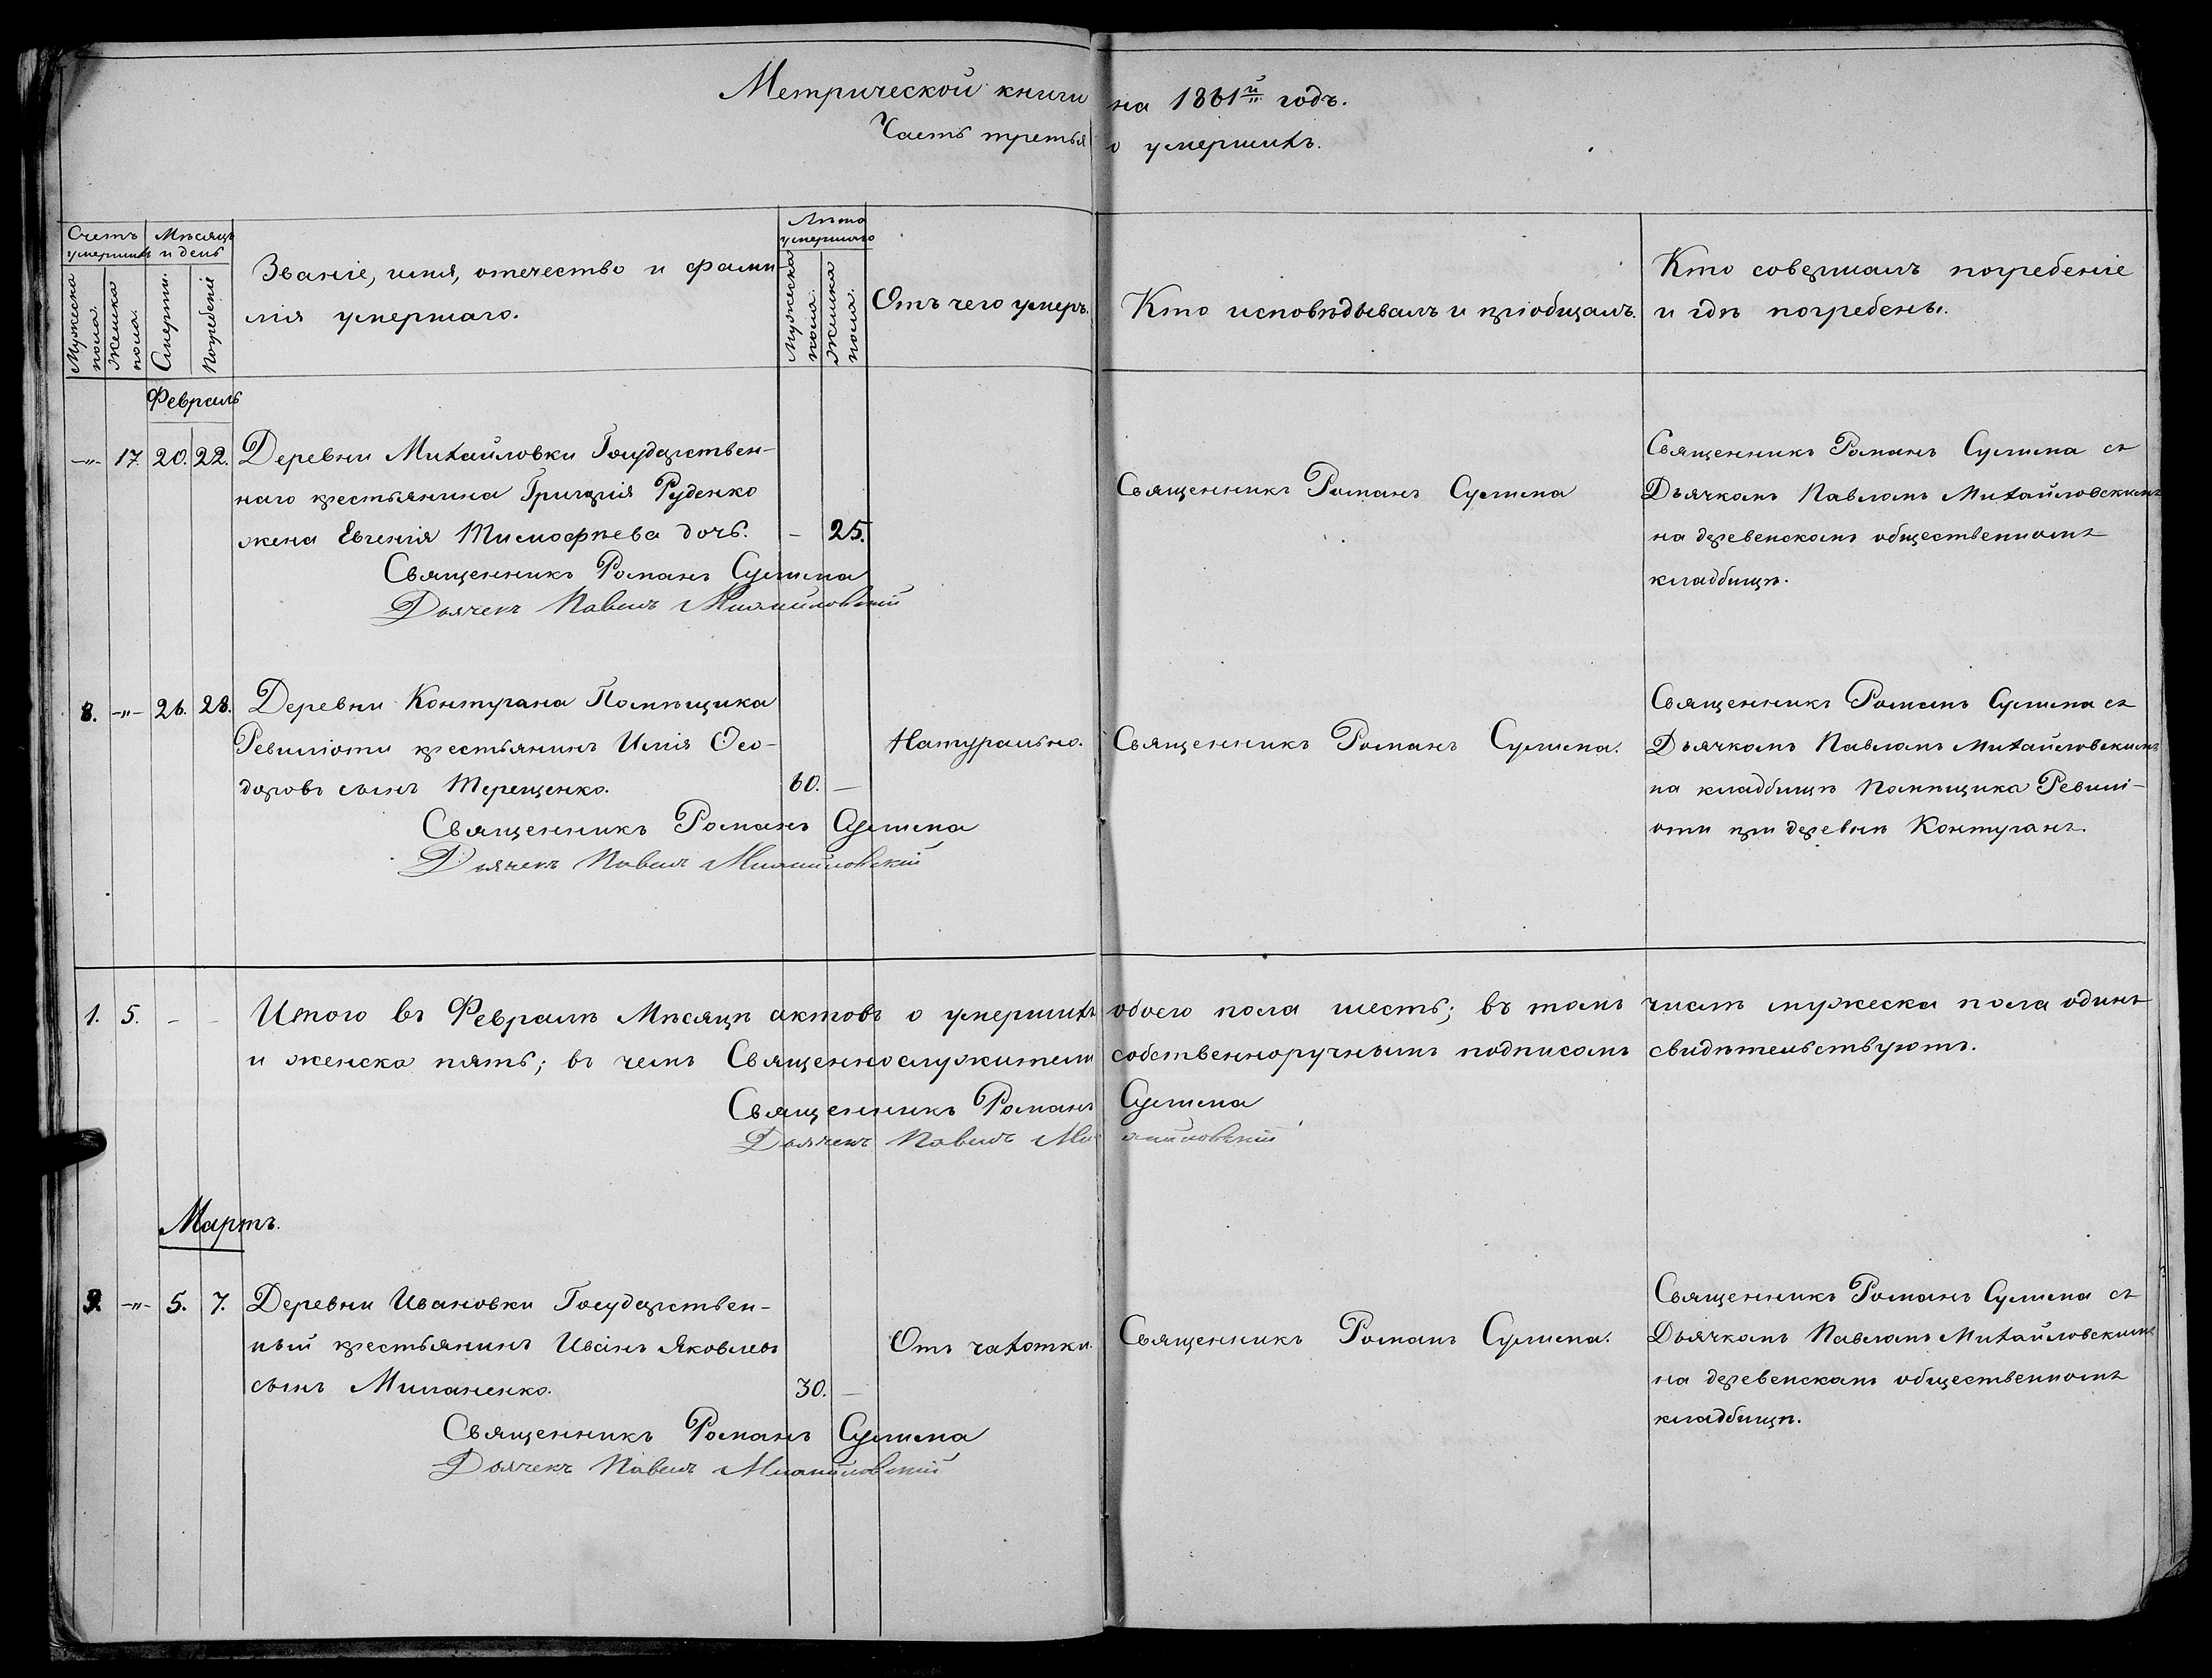 Метрической книги на 1861й годъ.
Часть третья о умершихъ.
Счетъ умершихъ
Мѣсяцъ и день
Званіе, имя, отечество и фами-
лія умершаго.
Лѣта умершаго
Отъ чего умеръ.
Кто исповѣдывалъ и пріобщалъ.
Кто совершалъ погребеніе
и гдѣ погребены.
Мужеска пола.
Женска пола.
Смерти.
Погребенія
Мужеска пола.
Женска пола.
Февраль
-"- 17. 20. 22. Деревни Михайловки Государствен-
наго крестьянина Григорія Руденко
жена Евгенія Тимофѣева дочь. - 25.
Священникъ Романъ
Дьячекъ Павелъ Михайловскій
Священникъ Романъ
Священникъ Романъ съ
Дьячкомъ Павломъ Михайловскимъ
на деревенскомъ общественномъ
кладбищѣ.
8. -"- 26. 28. Деревни Контугана Помѣщика
Ревиліоти крестьянинъ Илія Ѳео-
доровъ сынъ Терещенко. 60. -
Священникъ Романъ
Дьячекъ Павелъ Михайловскій
Натурально.
Священникъ Романъ
Священникъ Романъ съ
Дьячкомъ Павломъ Михайловскимъ
на кладбищѣ Помѣщика Ревилі-
оти при деревнѣ Контуганъ.
1. 5. - - Итого въ Февралѣ Мѣсяцѣ актовъ о умершихъ обоего пола шесть; въ томъ числѣ мужеска пола одинъ
и женска пять; въ чемъ Священнослужители собственноручнымъ подписомъ свидѣтельствуютъ.
Священникъ Романъ
Дьячекъ Павелъ Михайловскій
Мартъ.
9. -"- 5. 7. Деревни Ивановки Государствен-
ный крестьянинъ Иванъ Яковлевъ
сынъ Миланенко. 30. -
Священникъ Романъ
Дьячекъ Павелъ Михайловскій
Отъ чахотки.
Священникъ Романъ
Священникъ Романъ съ
Дьячкомъ Павломъ Михайловскимъ
на деревенскомъ общественномъ
кладбищѣ.